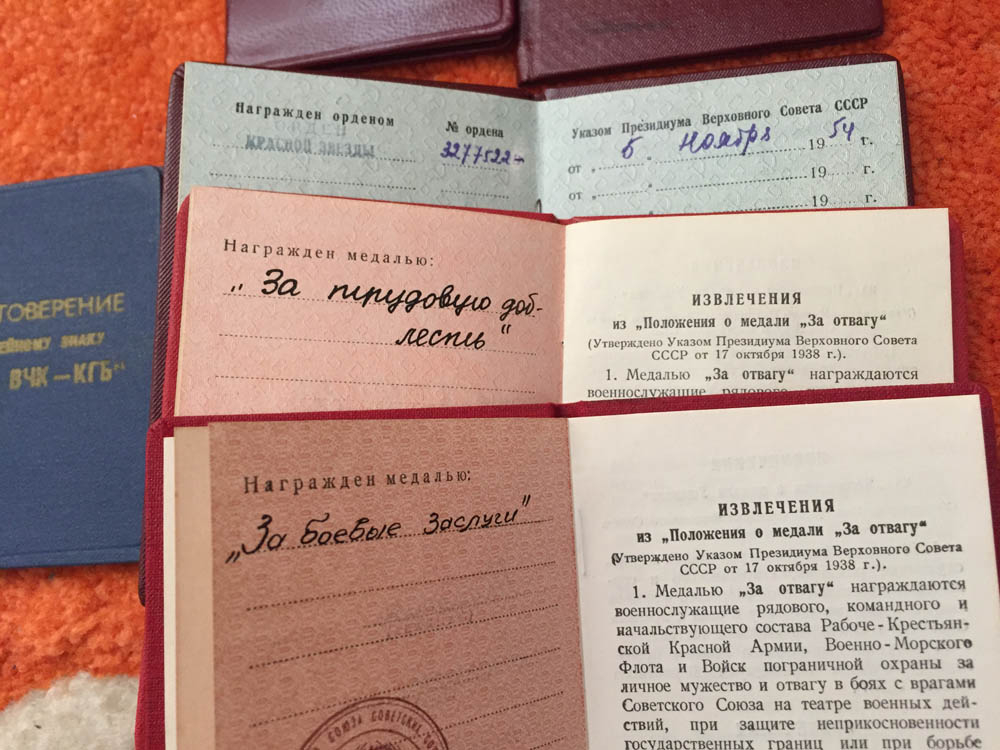 Награжден орденом
№ ордена
ОРДЕН
КРАСНОЙ ЗВЕЗДЫ
3277522
Указом Президиума Верховного Совета СССР
от „ 5 „ Ноября 19 54 г.
от „ “ 19 г.
19 г.
ТОВЕРЕНИЕ
ЕЙНОМУ ЗНАКУ
ВЧК—КГБ“
Награжден медалью:
„За трудовую доб-
лесть“
ИЗВЛЕЧЕНИЯ
из „Положения о медали „За отвагу“
(Утверждено Указом Президиума Верховного Совета
СССР от 17 октября 1938 г.).
1. Медалью „За отвагу“ награждаются
военнослужащие рядового
Награжден медалью:
„За боевые заслуги“
СОЮЗА СОВЕТСКИХ
ИЗВЛЕЧЕНИЯ
из „Положения о медали „За отвагу“
(Утверждено Указом Президиума Верховного Совета
СССР от 17 октября 1938 г.).
1. Медалью „За отвагу“ награждаются
военнослужащие рядового, командного и
начальствующего состава Рабоче-Крестьян-
ской Красной Армии, Военно-Морского
Флота и Войск пограничной охраны за
личное мужество и отвагу в боях с врагами
Советского Союза на театре военных дей-
ствий, при защите неприкосновенности
государственных границ или при борьбе